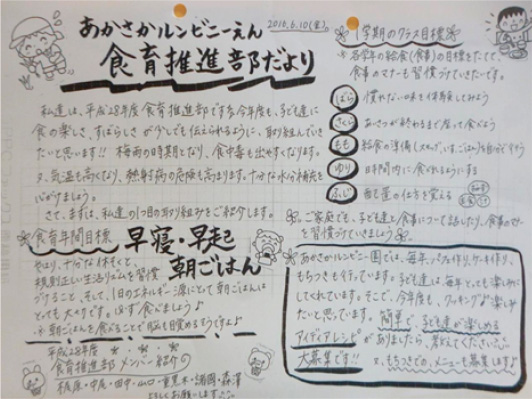 あかさかルンビニーえん
2016.6.10(金)
食育推進部だより
私達は、平成28年度食育推進部です。今年度も、子ども達に
食の楽しさ、すばらしさが少しでも伝えられるように、取り組んでいき
たいと思います!! 梅雨の時期となり、食中毒も出やすくなります。
又、気温も高くなり、熱射病の危険も高まります。十分な水分補給を
心がけましょう。
さて、まずは、私達の1つ目の取り組みをご紹介します。
食育年間目標
早寝・早起
朝ごはん
やはり、十分な休息と、
規則正しい生活リズムを習慣
づけること、そして、1日のエネルギー源にとって朝ごはんは
とっても大切です。必ず食べましょう♪
※朝ごはんを食べることで脳も目覚めるそうですよ♪
平成28年度
食育推進部 メンバー紹介
梶原・中尾・田中・山口・重黒木・諸岡・森澤
よろしくお願いします
1学期のクラス目標
各学年の給食(食事)の目標をたてて、
食事のマナーも習慣づけていきたいです。
ばら 慣れない味を体験してみよう
さくら あいさつが終わるまで座って食べよう
もも 給食の準備
ゆり 時間内に食べれるようにする
ふじ 箸と茶わんの仕方を覚える
ご家庭でも、子ども達と食事について話したり、食事のマナー
を習慣づけていきましょう
あかさかルンビニー園では、毎年、パフェ作り、ケーキ作り、
もちつきも行っています。子ども達は、毎年とっても楽しみに
してくれています。そこで、今年度も、クッキングを楽しみ
たいと思っています。簡単で、子ども達が楽しめる
アイディアレシピがありましたら、教えてください。
大募集です!! 又、もちつきでの、メニューも募集します♪